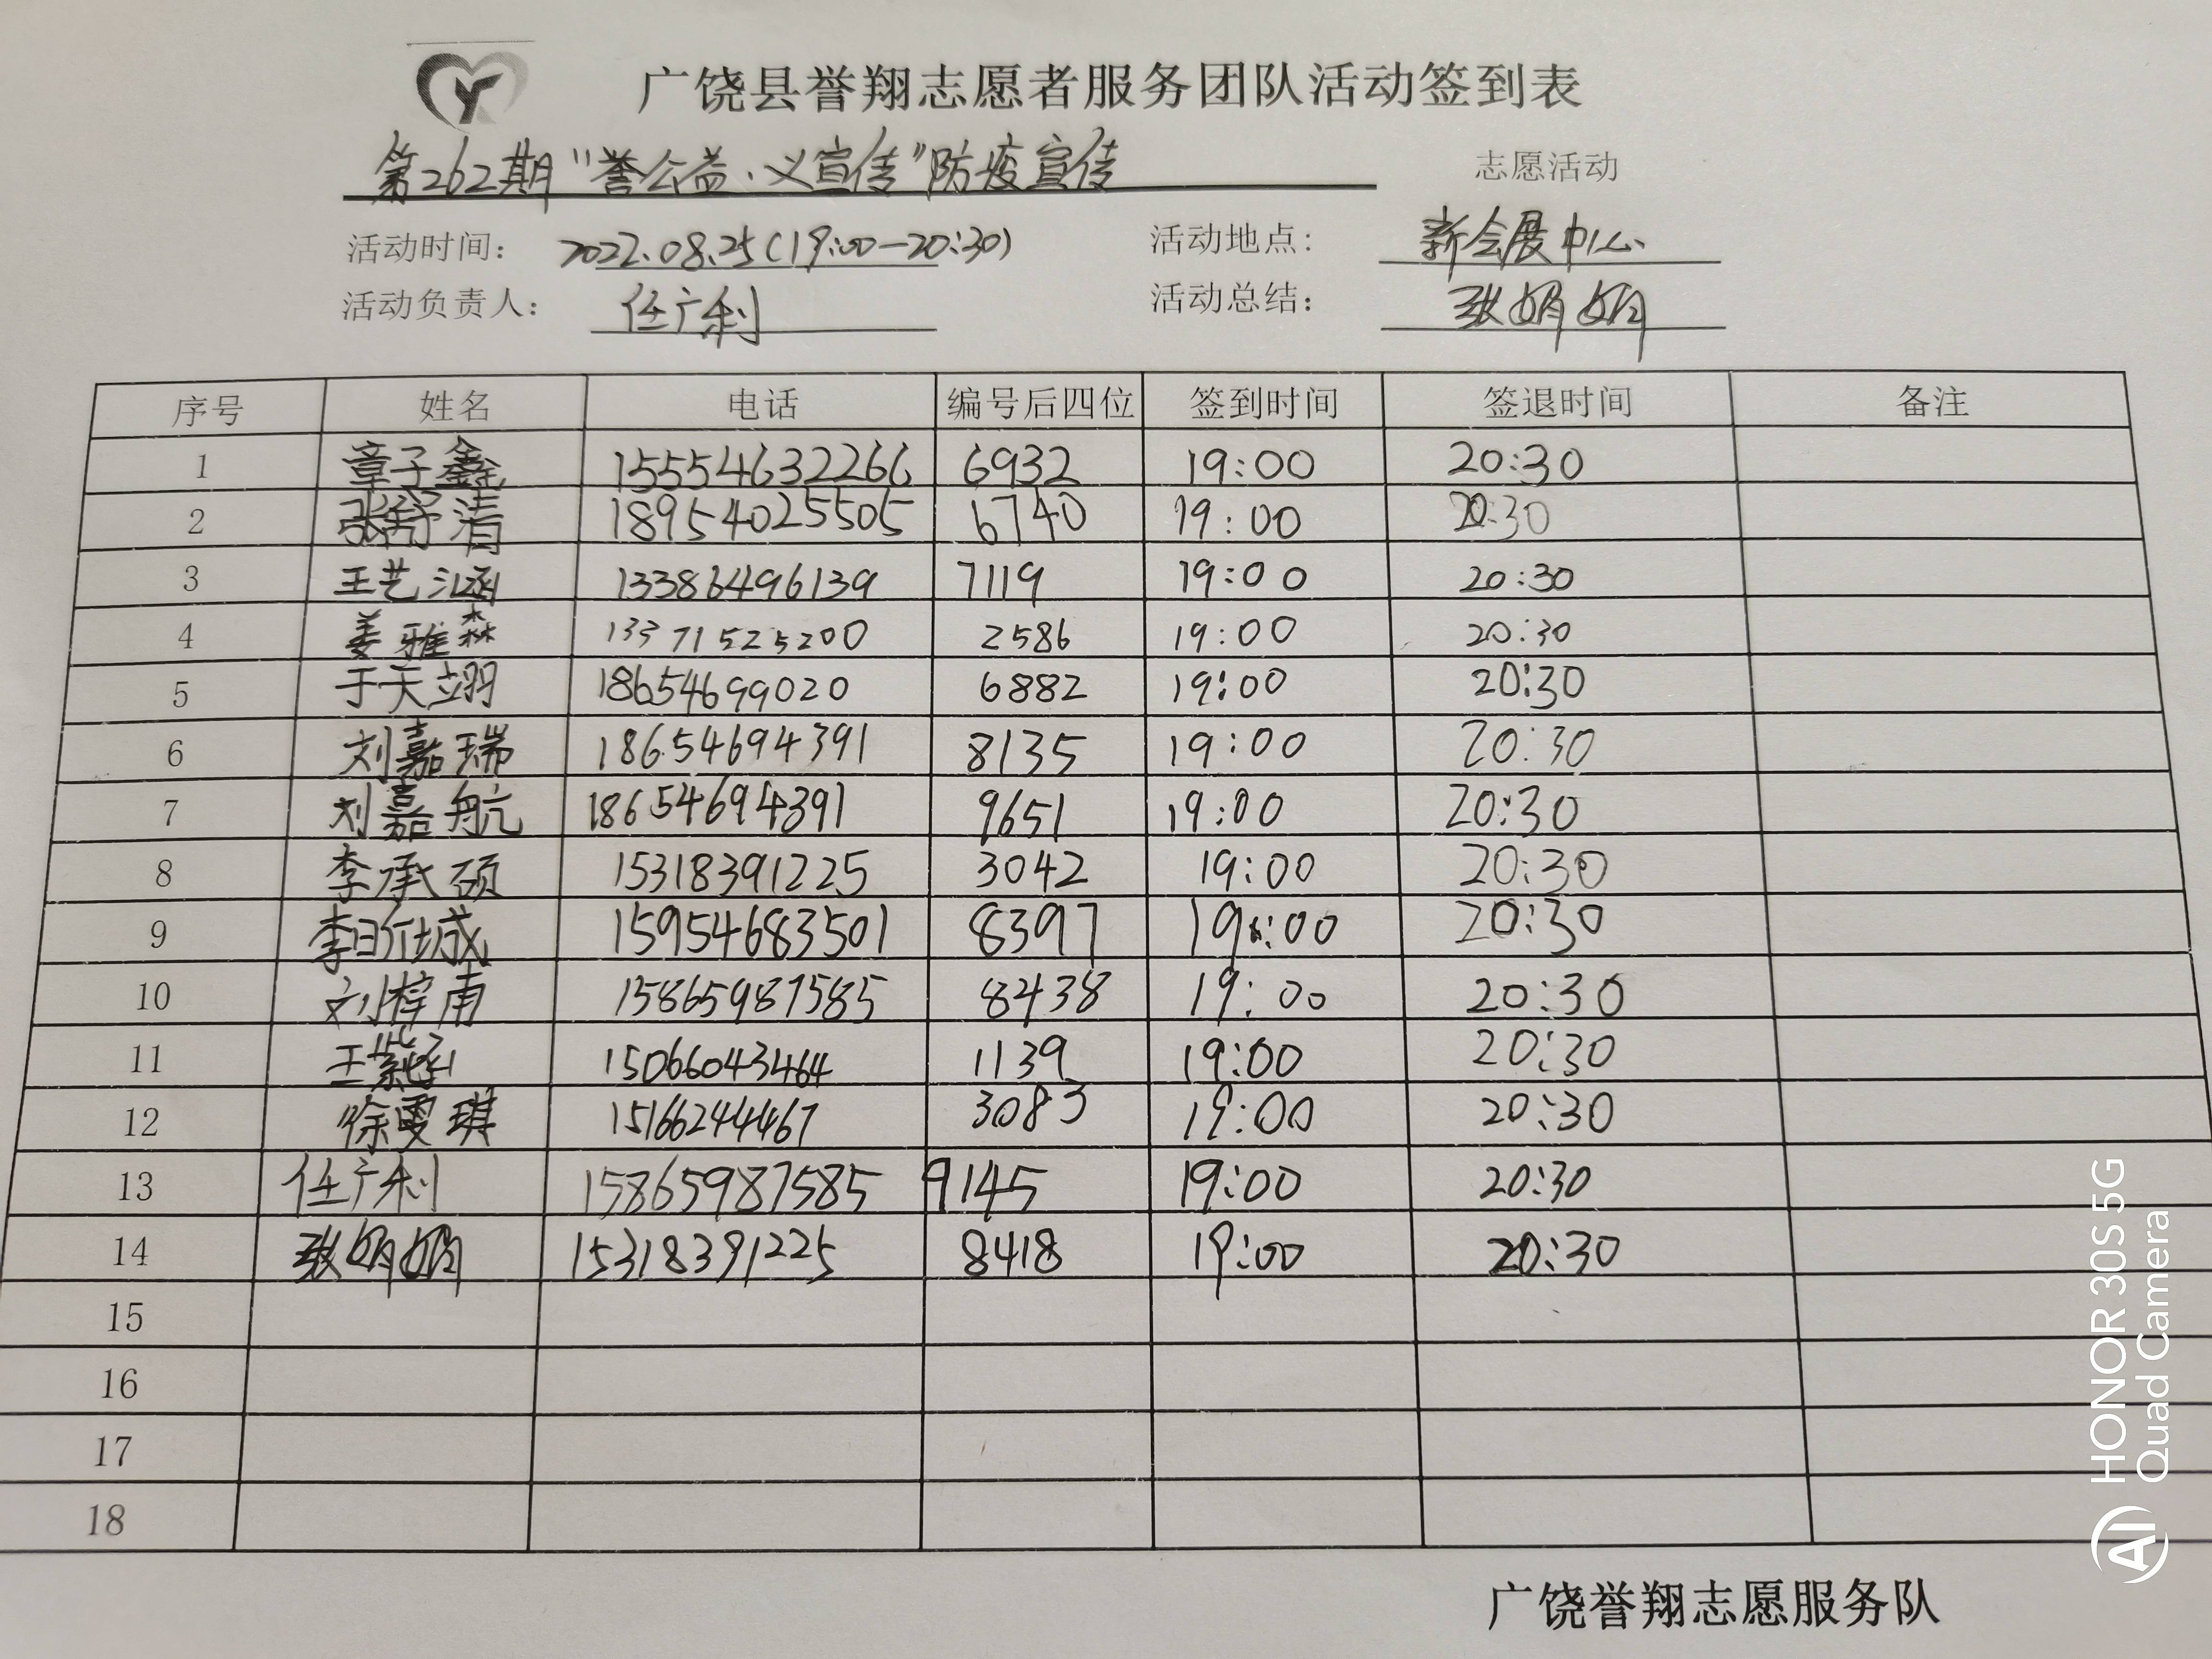 广饶县誉翔志愿者服务团队活动签到表
第262期“誉公益·义宣传”防疫宣传 志愿活动
活动时间: 2022.08.25(19:00-20:30) 活动地点: 新会展中心
活动负责人: 任广利 活动总结: 张娟娟
序号 姓名 电话 编号后四位 签到时间 签退时间 备注
1 章子鑫 15554632266 6932 19:00 20:30
2 张舒清 18954025505 6740 19:00 20:30
3 王艺涵 13386496139 7119 19:00 20:30
4 姜雅森 13371525200 2586 19:00 20:30
5 于天翊 18654699020 6882 19:00 20:30
6 刘嘉瑞 18654694391 8135 19:00 20:30
7 刘嘉航 18654694391 9651 19:00 20:30
8 李承硕 15318391225 3042 19:00 20:30
9 李 城 15954683501 8397 19:00 20:30
10 刘梓南 15865987585 8438 19:00 20:30
11 王紫涵 15066043464 1139 19:00 20:30
12 徐雯琪 15166244467 3083 19:00 20:30
13 任广利 15865987585 9145 19:00 20:30
14 张娟娟 15318391225 8418 19:00 20:30
15
16
17
18
广饶誉翔志愿服务队
AI HONOR 30S 5G
Quad Camera